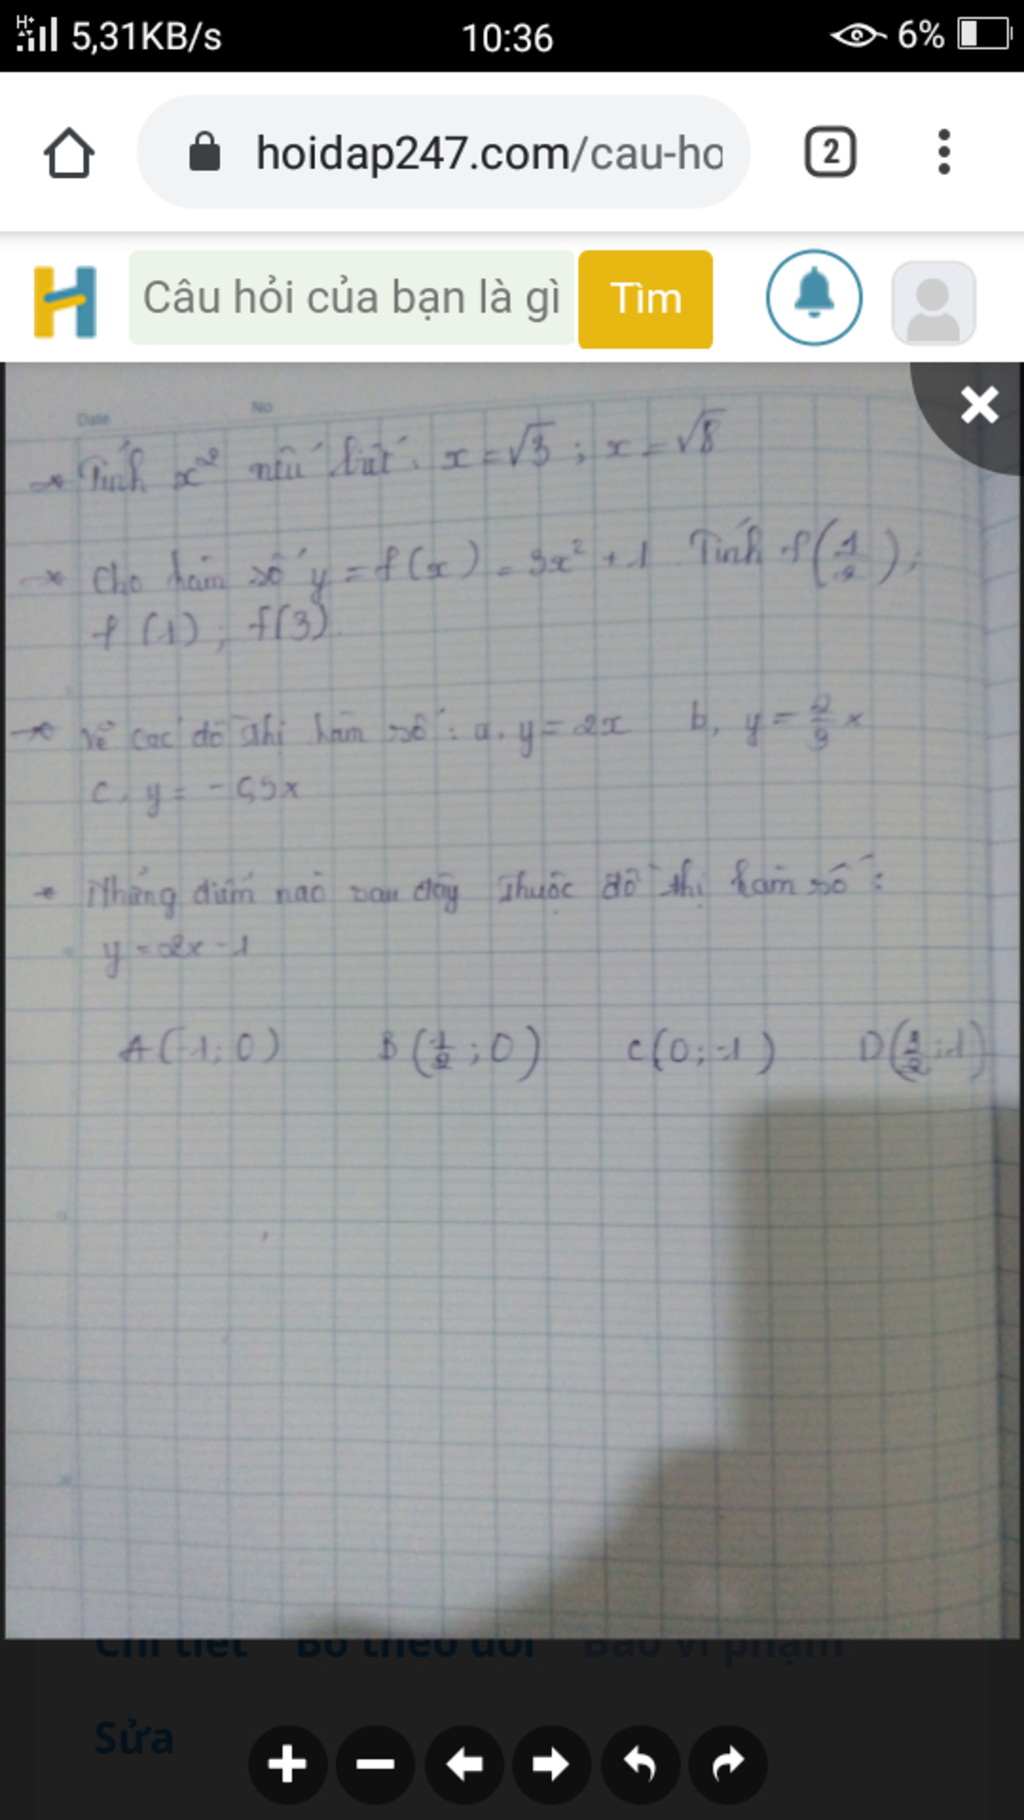 5,31KB/s 10:36 6%
hoidap247.com/cau-ho 2
Câu hỏi của bạn là gì Tìm
Date No
Tính x² nếu biết: x = √3 ; x = √8
Cho hàm số y = f(x) = 3x² + 1 Tính f(1/2);
f(1); f(3).
Vẽ các đồ thị hàm số: a, y = 2x b, y = 2/3 x
c, y = -0,5x
Những điểm nào sau đây thuộc đồ thị hàm số:
y = 2x - 1
A(-1; 0) B(1/2; 0) C(0; -1)
Chi tiết Bỏ theo dõi Báo vi phạm
Sửa